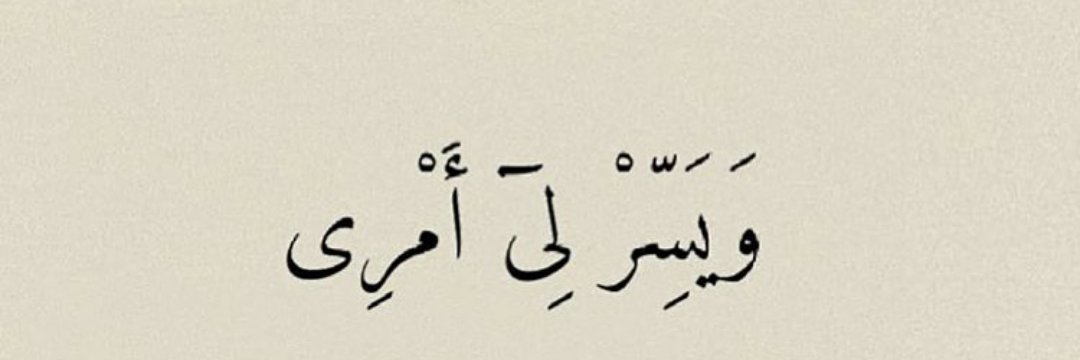 وَيَسِّرْ لِىٓ أَمْرِى